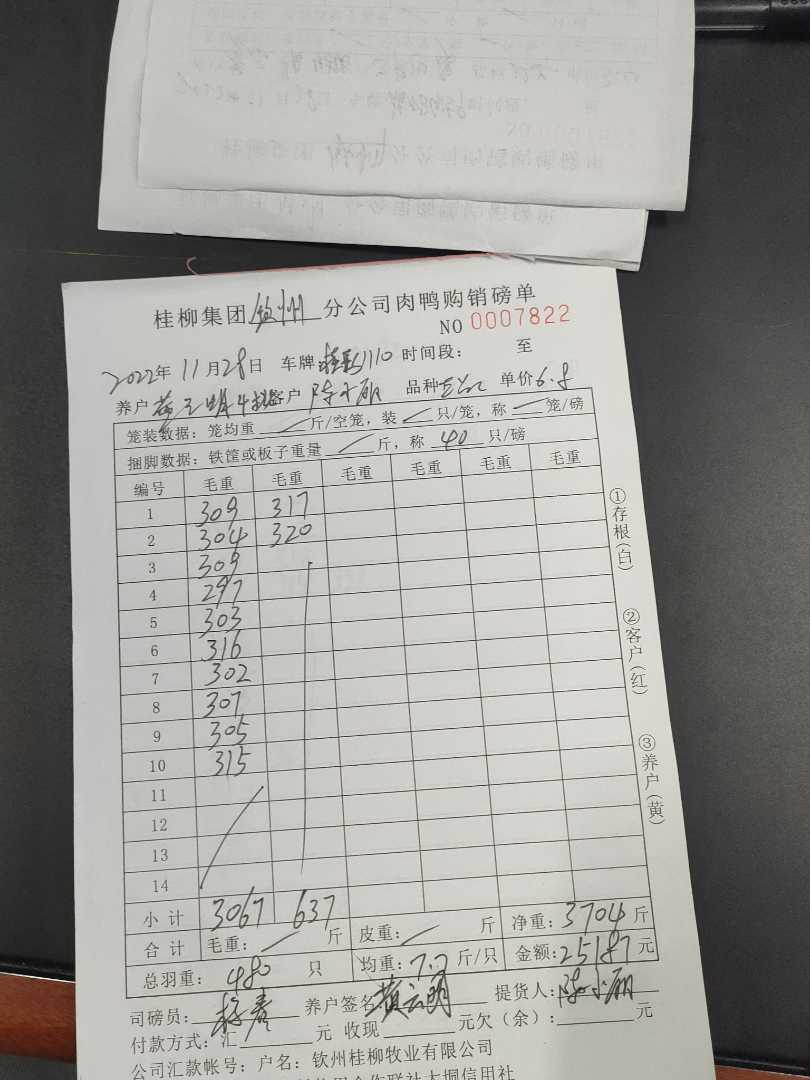 桂柳集团钦州分公司肉鸭购销磅单
NO 0007822
2022年11月28日 车牌 1110 时间段: 至
养户 黄云明 客户 陈小丽 品种 单价6.8
笼装数据: 笼均重 / 斤/空笼, 装 / 只/笼, 称 / 笼/磅
捆脚数据: 铁筐或板子重量 / 斤, 称 40 只/磅
编号 毛重 毛重 毛重 毛重 毛重 毛重
1 309 317
2 304 320
3 309
4 297
5 303
6 316
7 302
8 307
9 305
10 315
11
12
13
14
小计 3067 637
合计 毛重: / 斤 皮重: / 斤 净重: 3704 斤
总羽重: 480 只 均重: 7.7 斤/只 金额: 25187 元
司磅员: 养户签名 黄云明 提货人: 陈小丽
付款方式: 汇 元 收现 元欠(余): 元
公司汇款帐号: 户名: 钦州桂柳牧业有限公司
信用合作联社大垌信用社
①存根(白)
②客户(红)
③养户(黄)